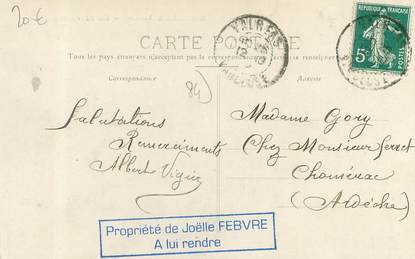 20€
CARTE POSTALE
Tous les pays étrangers n'acceptent pas la correspondance
Correspondance
Adresse
VALRÉAS
VAUCLUSE
RÉPUBLIQUE FRANÇAISE
5c
84)
Salutations
Remerciments
Albert Vigié
Madame Gory
Chez Monsieur Serret
Chomérac
(Ardèche)
Propriété de Joëlle FEBVRE
A lui rendre